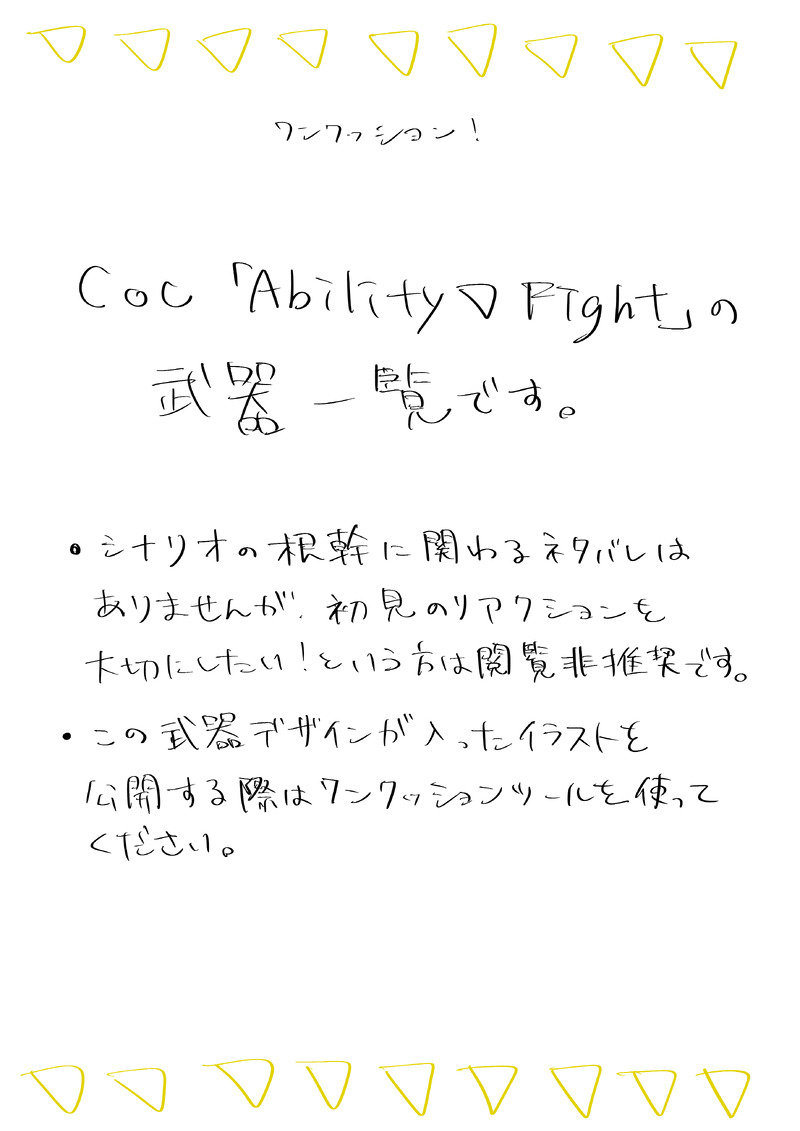 ワンクッション！
CoC「Ability▽Fight」の
武器一覧です。
・シナリオの根幹に関わるネタバレは
ありませんが、初見のリアクションを
大切にしたい！という方は閲覧非推奨です。
・この武器デザインが入ったイラストを
公開する際はワンクッションツールを使って
ください。